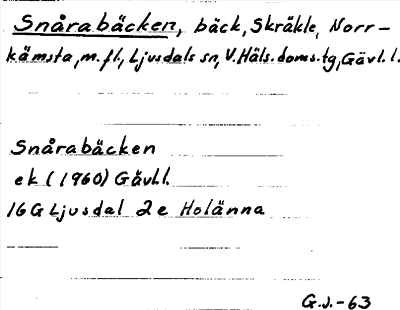 Snårabäcken, bäck, Skräkle, Norr-
kämsta, m.fl., Ljusdals sn, V. Häls. doms. tg, Gävl. l.
Snårabäcken
ek (1960) Gävl.l.
16 G Ljusdal 2 e Holänna
G.J.-63